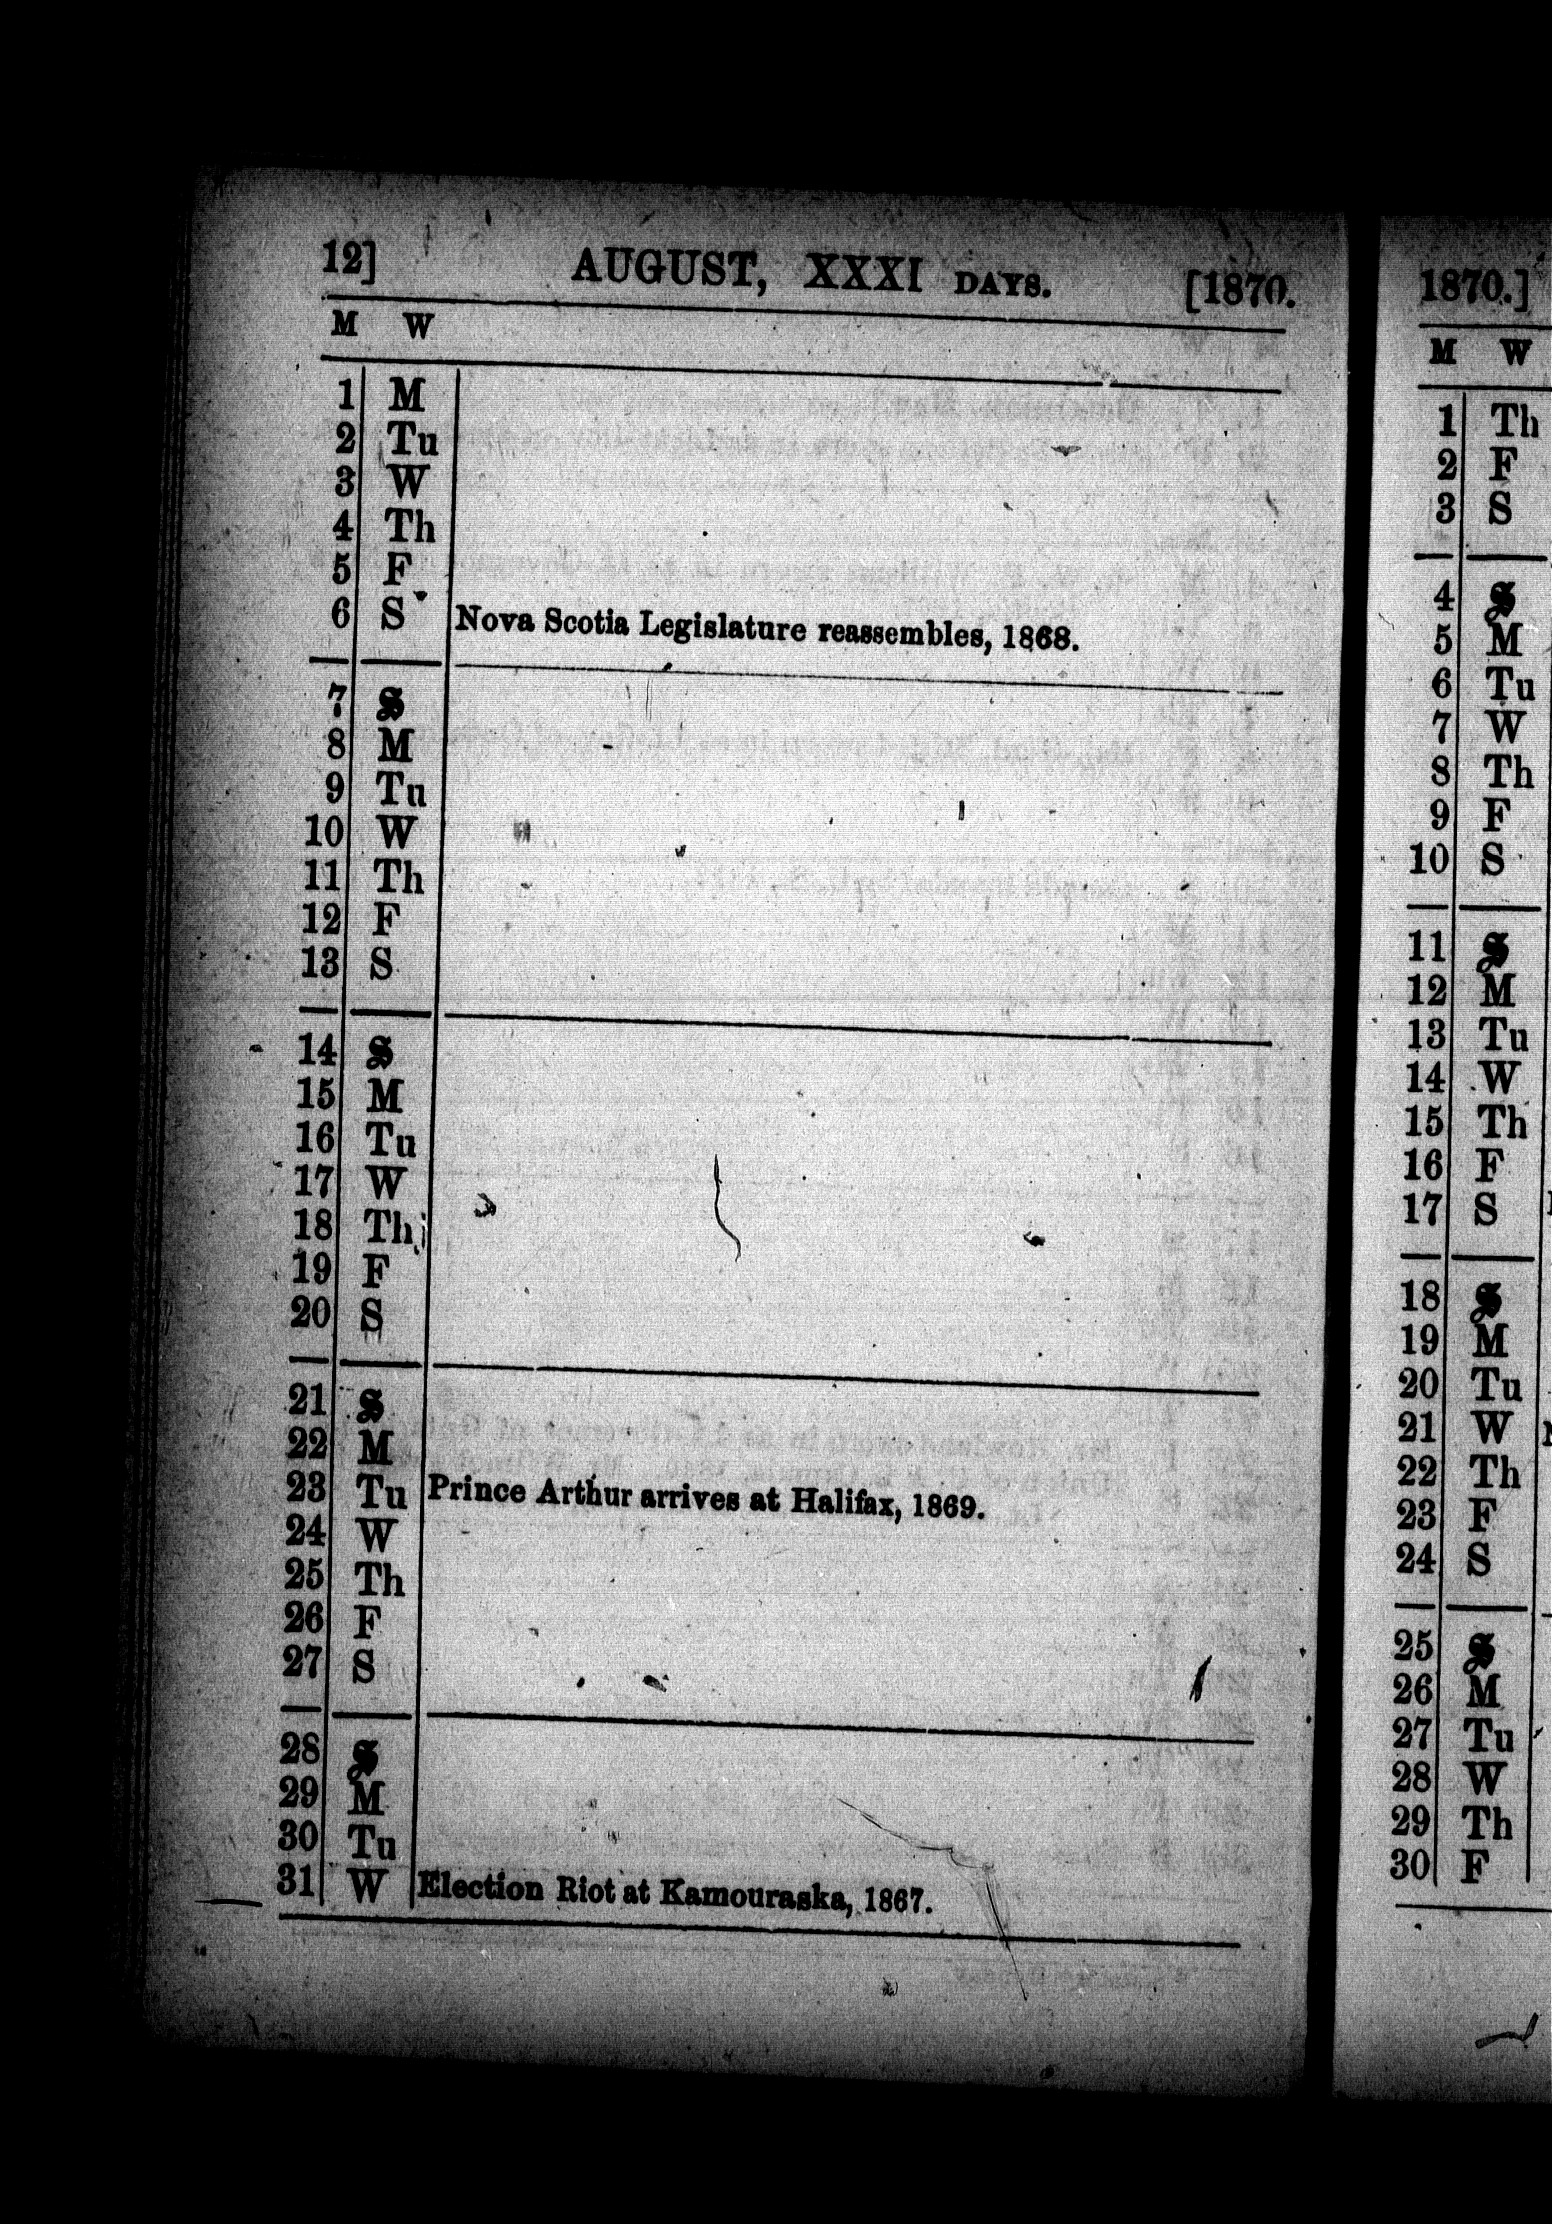 12] AUGUST, XXXI DAYS. [1870.
M W
1 M
2 Tu
3 W
4 Th
5 F
6 S Nova Scotia Legislature reassembles, 1868.
7 S
8 M
9 Tu
10 W
11 Th
12 F
13 S
14 S
15 M
16 Tu
17 W
18 Th
19 F
20 S
21 S
22 M
23 Tu Prince Arthur arrives at Halifax, 1869.
24 W
25 Th
26 F
27 S
28 S
29 M
30 Tu
31 W Election Riot at Kamouraska, 1867.
1870.]
M W
1 Th
2 F
3 S
4 S
5 M
6 Tu
7 W
8 Th
9 F
10 S
11 S
12 M
13 Tu
14 W
15 Th
16 F
17 S
18 S
19 M
20 Tu
21 W
22 Th
23 F
24 S
25 S
26 M
27 Tu
28 W
29 Th
30 F